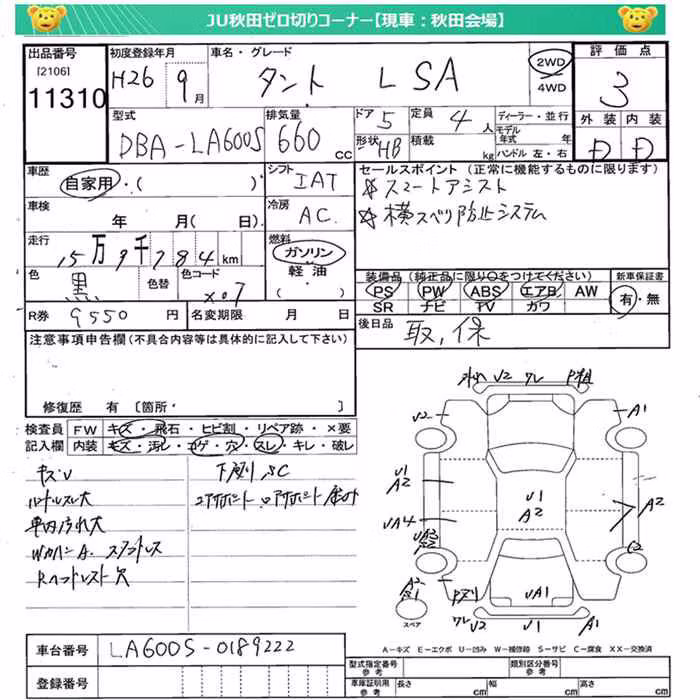 JU秋田ゼロ切りコーナー【現車：秋田会場】
出品番号 初度登録年月 車名・グレード 評価点
[2106] H26 9月 タント L SA 2WD 3
11310 4WD
外装 内装
型式 排気量 ドア 5 定員 4人 ディーラー・並行
DBA-LA600S 660cc 形状 HB 積載 kg モデル年式 年 D D
ハンドル 左・右
車歴 シフト セールスポイント (正常に機能するものに限ります)
自家用・( ) IAT ☆スマートアシスト
車検 年 月( 日) 冷房 AC. ☆横スベリ防止システム
走行 15万9千784km 燃料 ガソリン
軽油・( )
色 黒 色替 色コード X07
装備品(純正品に限り○をつけてください) 新車保証書
PS PW ABS エアB AW 有・無
SR ナビ TV カワ
R券 9550円 名変期限 月 日 後日品 取,保
注意事項申告欄 (不具合内容等は具体的に記入して下さい)
修復歴 有 [箇所・ ]
検査員 FW キズ・飛石・ヒビ割・リペア跡・×要
記入欄 内装 キズ・汚レ・コゲ・穴・スレ・キレ・破レ
キズU 下廻りSC
ハンドルスレ大
車内汚れ大
Rヘッドレスト穴
U2 ワレ
U2 A1
U1
A2
U1
A2
A2
UA4
UA3
C2
A2
UA1
スペア
ワレ U2 U1 A1
A-キズ E-エクボ U-凹み W-補修跡 S-サビ C-腐食 XX-交換済
車台番号 LA600S-0189222
登録番号
型式指定番号 参考 類別区分番号 参考
車庫証明用 参考 長さ cm 幅 cm 高さ cm